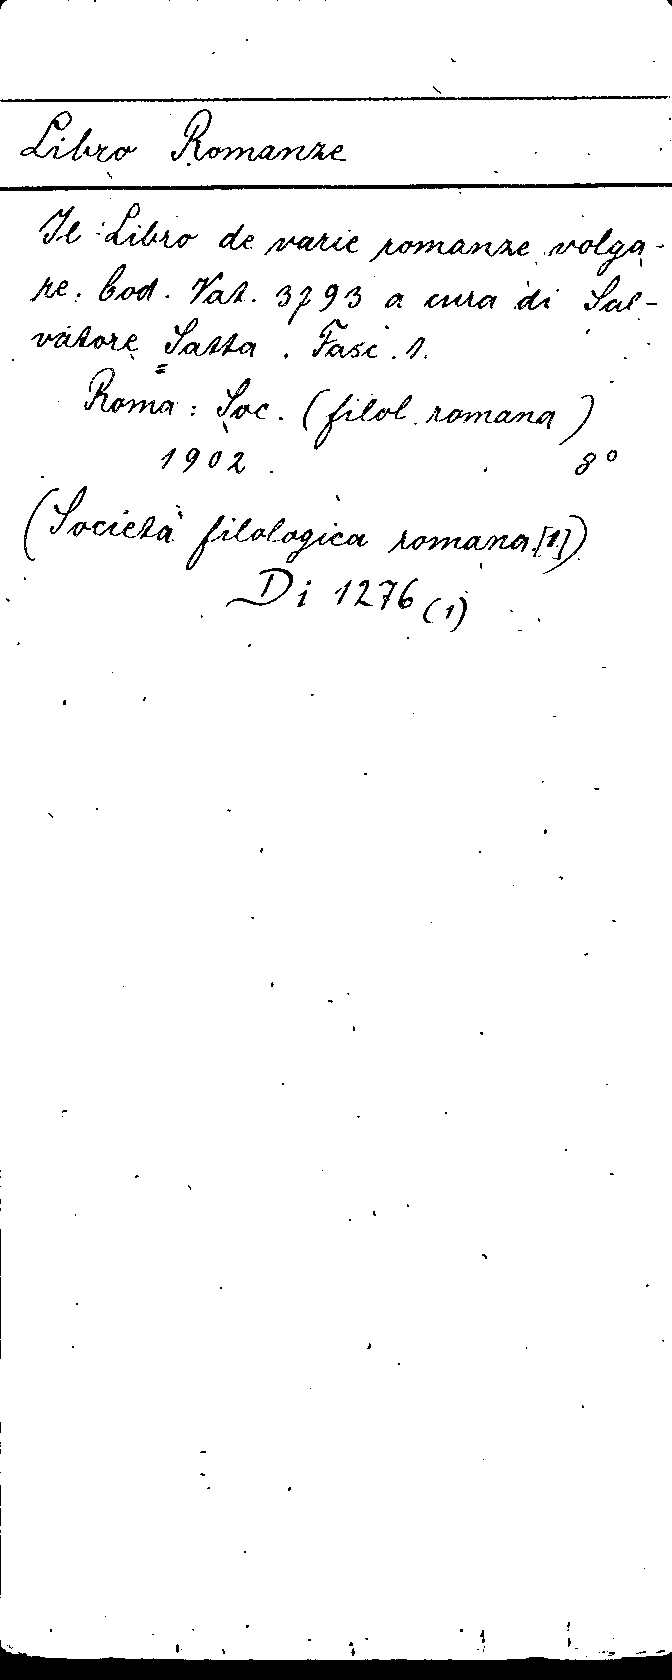 Libro Romanze
Il Libro de varie romanze volga-
re. Cod. Vat. 3793 a cura di Sal-
vatore Satta. Fasc. 1.
Roma: Soc. (filol. romana)
1902. 8°
(Società filologica romana.[1])
Di 1276(1)